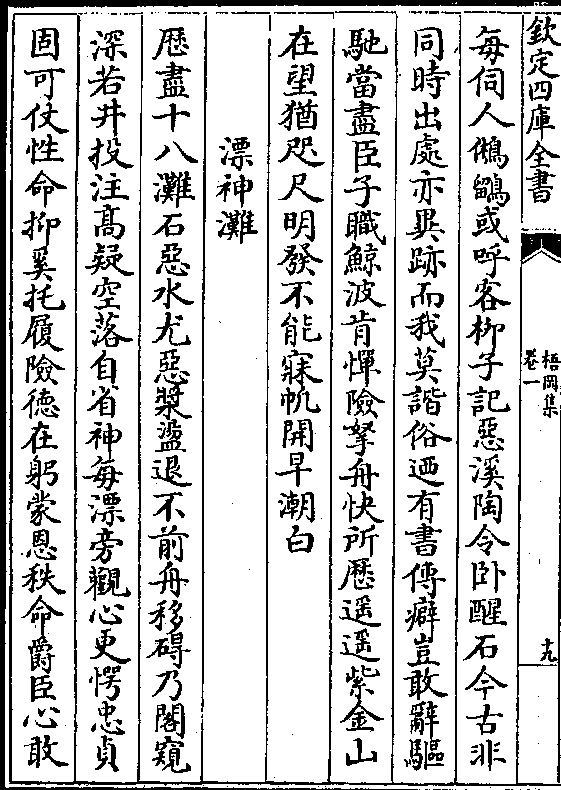 欽定四庫全書
梧岡集
卷一
十九
每伺人鵂鶹或呼客柳子記惡溪陶令卧醒石今古非
同時出處亦異跡而我莫諧俗迺有書傳癖豈敢辭驅
馳當盡臣子職鯨波肯憚險拏舟快所歴遥遥紫金山
在望猶咫尺明發不能寐帆開早潮白
漂神灘
歴盡十八灘石惡水尤惡槳盪退不前舟移碍乃閣窺
深若井投注髙疑空落自省神每漂旁觀心更愕忠貞
固可仗性命抑奚托履險德在躬蒙恩秩命爵臣心敢